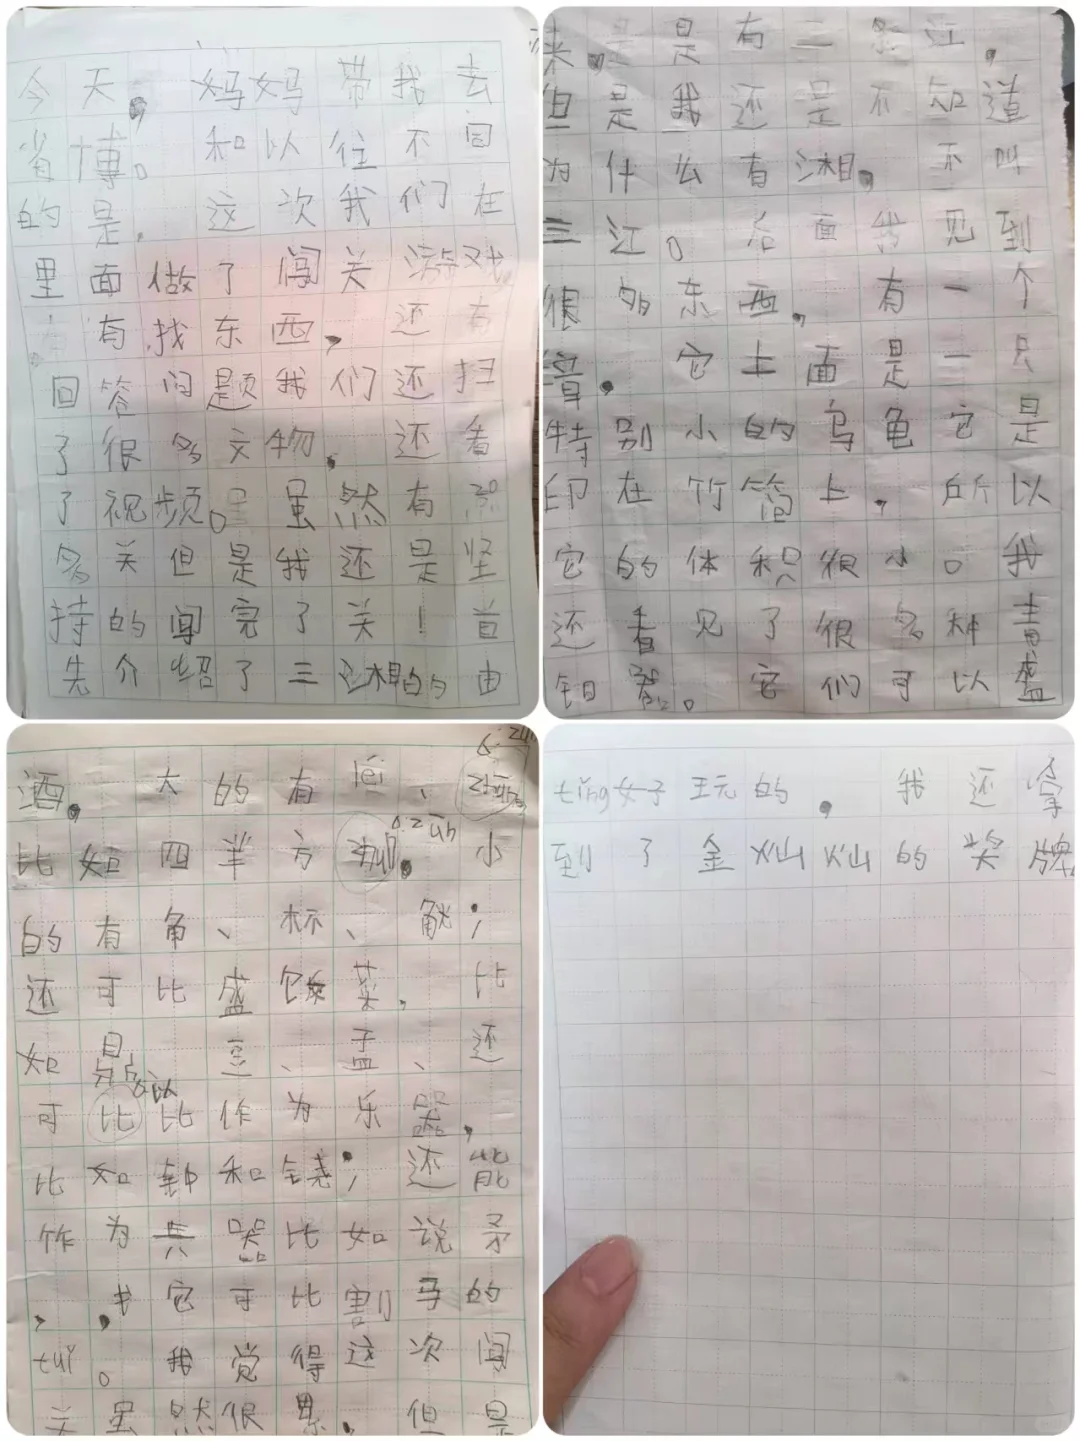 今天，妈妈带我去
省博。和以往不同
的是，这次我们在
里面做了闯关游戏
有找东西，还有
回答问题我们还扫
了很多文物，还看
了视频。虽然有
多关但是我还是坚
持的闯完了关！首
先介绍了三湘的由
来，是有三条江，
但是我还是不知道
为什么有湘，不叫
三江。后面我见到
很多东西，有一个
它上面是一只
特别小的乌龟它是
印在竹简上，所以
它的体积很小。我
还看见了很多种青
铜器。它们可以盛
酒，大的有léi、
zūn
比如四羊方，小
zūn
的有角、杯、觥；
还可比盛饭菜，比
如鼎、豆、盂、还
可比比作为乐器，
以
比如钟和铙；还能
作为兵器比如说矛
，，它可比割马的
tuǐ。我觉得这次闯
关虽然很累，但是
tǐng好玩的，我还拿
到了金灿灿的奖牌。